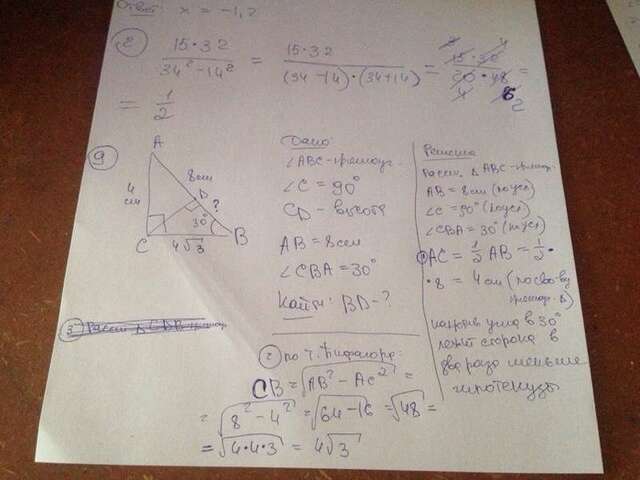 Ответ: x = -1,2
② 15·32 / 34² - 14² = 15·32 / (34-14)·(34+14) = 15·32 / 20·48 =
= 1/2
⑨
A
8см
4 см
D
?
30°
C
4√3
B
Дано:
∠ABC - прямоуг.
∠C = 90°
CD - высота
AB = 8см
∠CBA = 30°
Найти: BD - ?
Решение
Рассм. Δ ABC - прямоуг.
AB = 8см (по усл)
∠C = 90° (по усл)
∠CBA = 30° (по усл)
① AC = 1/2 AB = 1/2 ·
· 8 = 4см (по св-ву
прямоуг. Δ)
против угла в 30°
лежит сторона в
два раза меньше
гипотенузы
3 Рассм Δ CDB - прямоуг.
② по т. Пифагора:
CB = √AB² - AC² =
= √8² - 4² = √64 - 16 = √48 =
= √4·4·3 = 4√3